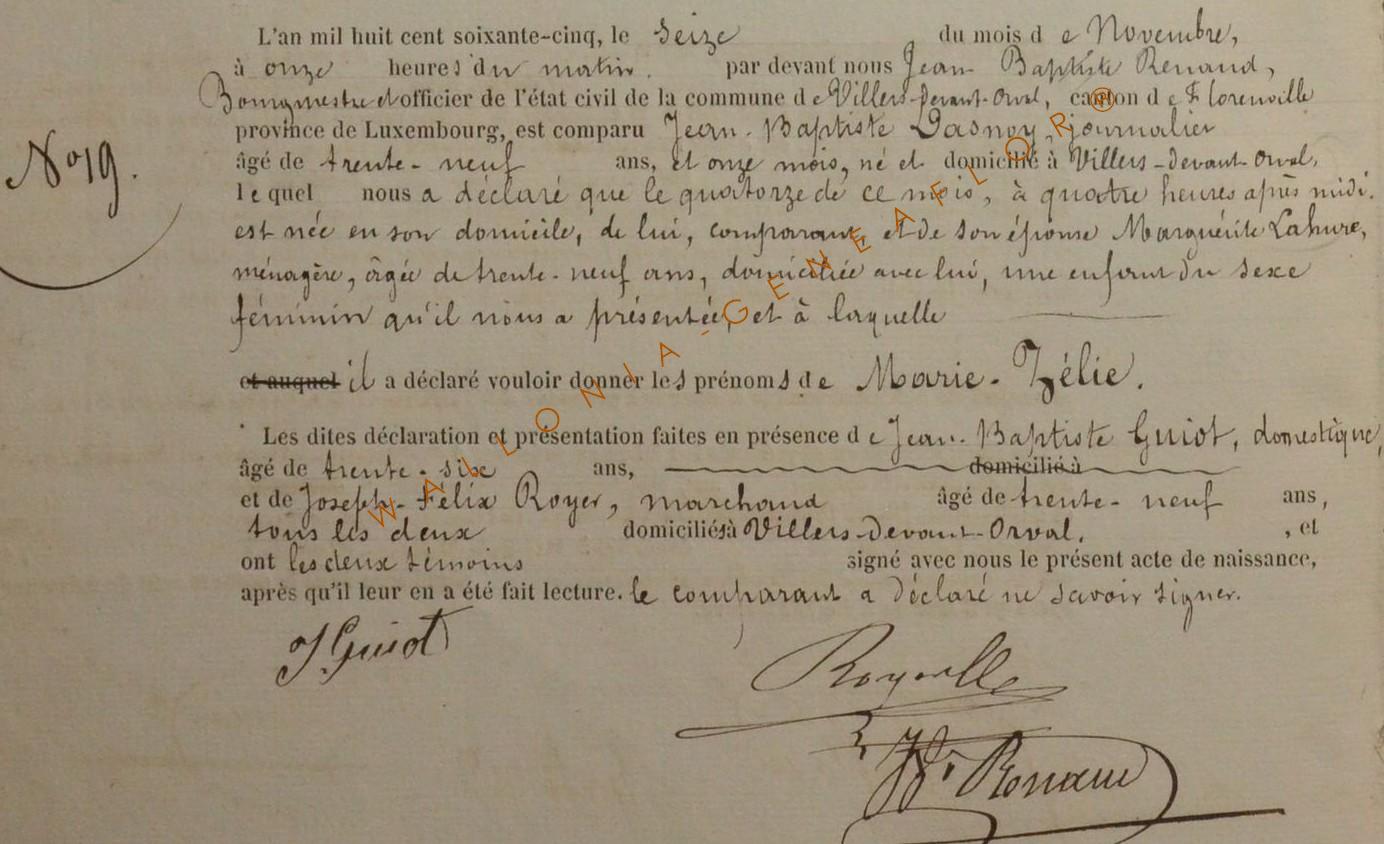 L'an mil huit cent soixante-cinq, le Seize du mois de Novembre,
à onze heures du matin. par devant nous Jean Baptiste Renaud,
Bourgmestre et officier de l'état civil de la commune de Villers-devant-Orval, canton de Florenville
province de Luxembourg, est comparu Jean-Baptiste Dasnoy, journalier
N° 19.
âgé de trente-neuf ans, et onze mois, né et domicilié à Villers-devant-Orval,
lequel nous a déclaré que le quatorze de ce mois, à quatre heures après midi.
est née en son domicile, de lui, comparant et de son épouse Marguérite Lahure,
ménagère, âgée de trente-neuf ans, domiciliée avec lui, une enfant du sexe
féminin qu'il nous a présentée, et à laquelle
et auquel il a déclaré vouloir donner les prénoms de Marie-Zélie.
Les dites déclaration et présentation faites en présence de Jean-Baptiste Guiot, domestique,
âgé de trente-six ans, domicilié à
et de Joseph-Félix Royer, marchand âgé de trente-neuf ans,
tous les deux domiciliés à Villers-devant-Orval. , et
ont les deux témoins signé avec nous le présent acte de naissance,
après qu'il leur en a été fait lecture. le comparant a déclaré ne savoir signer.
J. Guiot
Renaud
WALLONIA-GENEAFLOR®